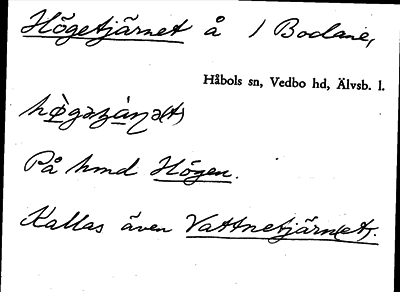 Högetjärnet å / Bodane,
Håbols sn, Vedbo hd, Älvsb. l.
På hmd Högen.
Kallas även Vattnetjärn(et).